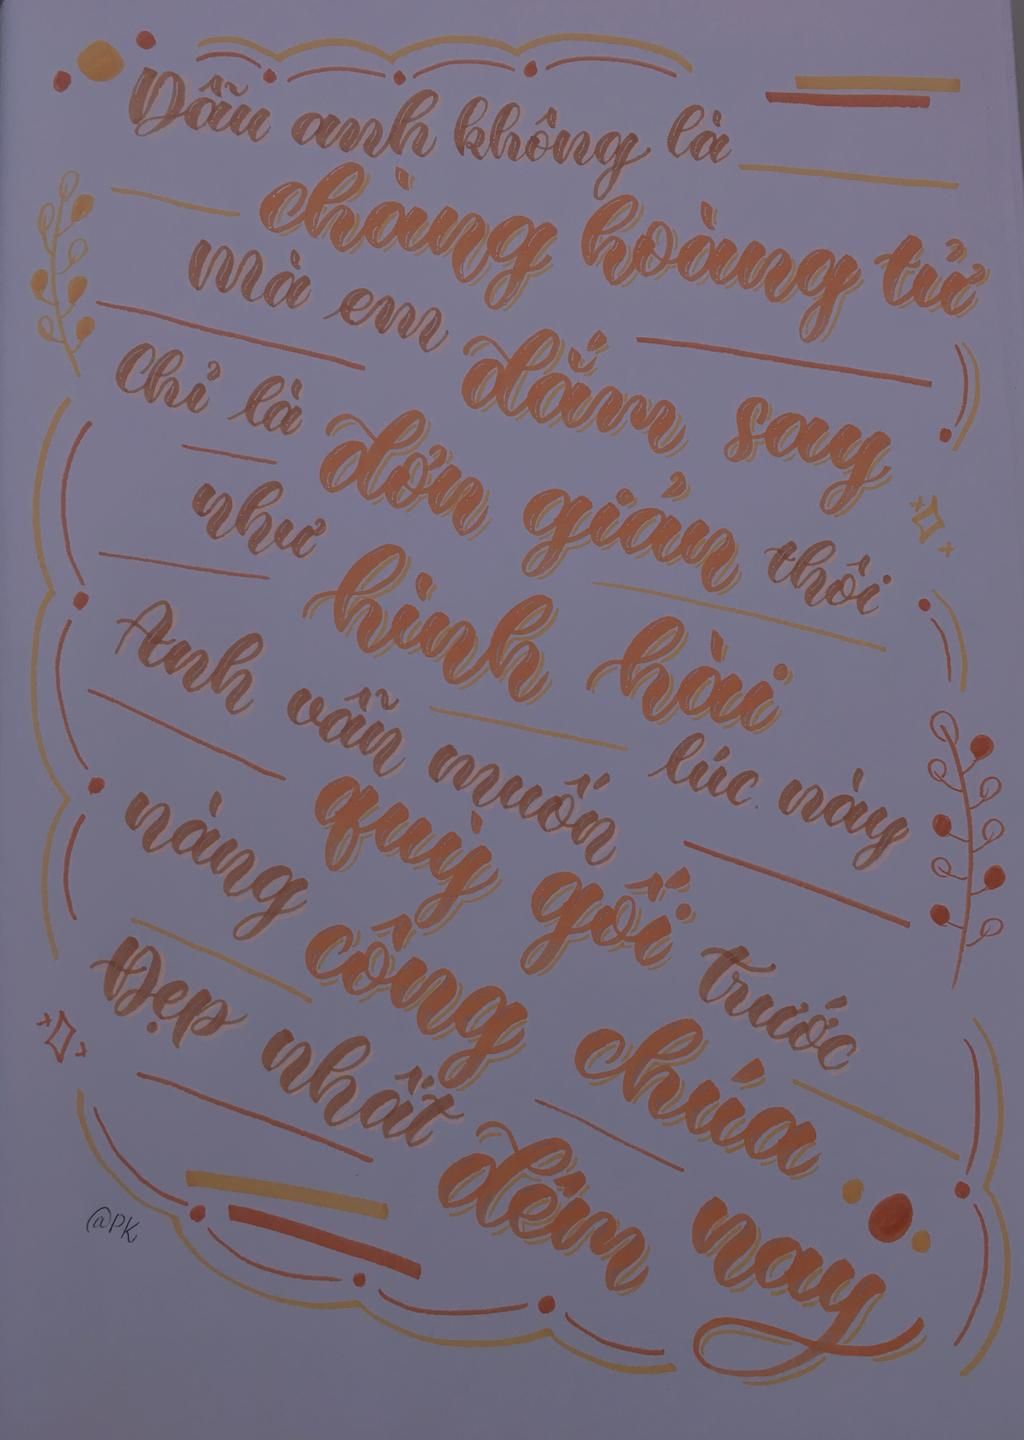 Dẫu anh không là
chàng hoàng tử
Mà em đắm say
Chỉ là đơn giản thôi
như hình hài lúc này
Anh vẫn muốn quỳ gối trước
nàng công chúa
Đẹp nhất đêm nay
@PK